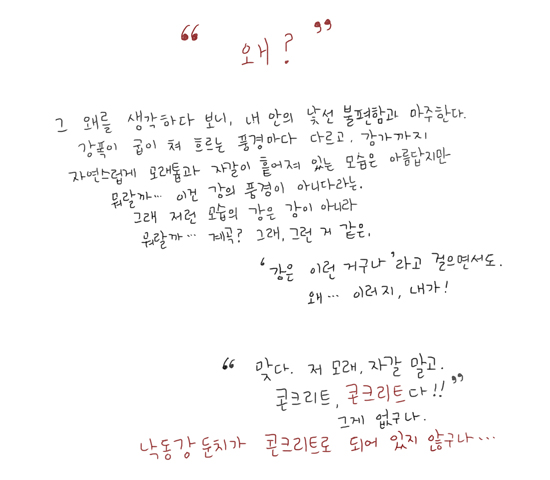 “ 왜? ”
그 왜를 생각하다 보니, 내 안의 낯선 불편함과 마주한다.
강폭이 굽이 쳐 흐르는 풍경마다 다르고, 강가까지
자연스럽게 모래톱과 자갈이 흩어져 있는 모습은 아름답지만
뭐랄까... 이건 강의 풍경이 아니다라는.
그래 저런 모습의 강은 강이 아니라
뭐랄까... 계곡? 그래, 그런 거 같은.
‘강은 이런 거구나’라고 걸으면서도.
왜... 이러지, 내가!
“ 맞다. 저 모래, 자갈 말고.
콘크리트, 콘크리트다!! ”
그게 없구나.
낙동강 둔치가 콘크리트로 되어 있지 않구나...